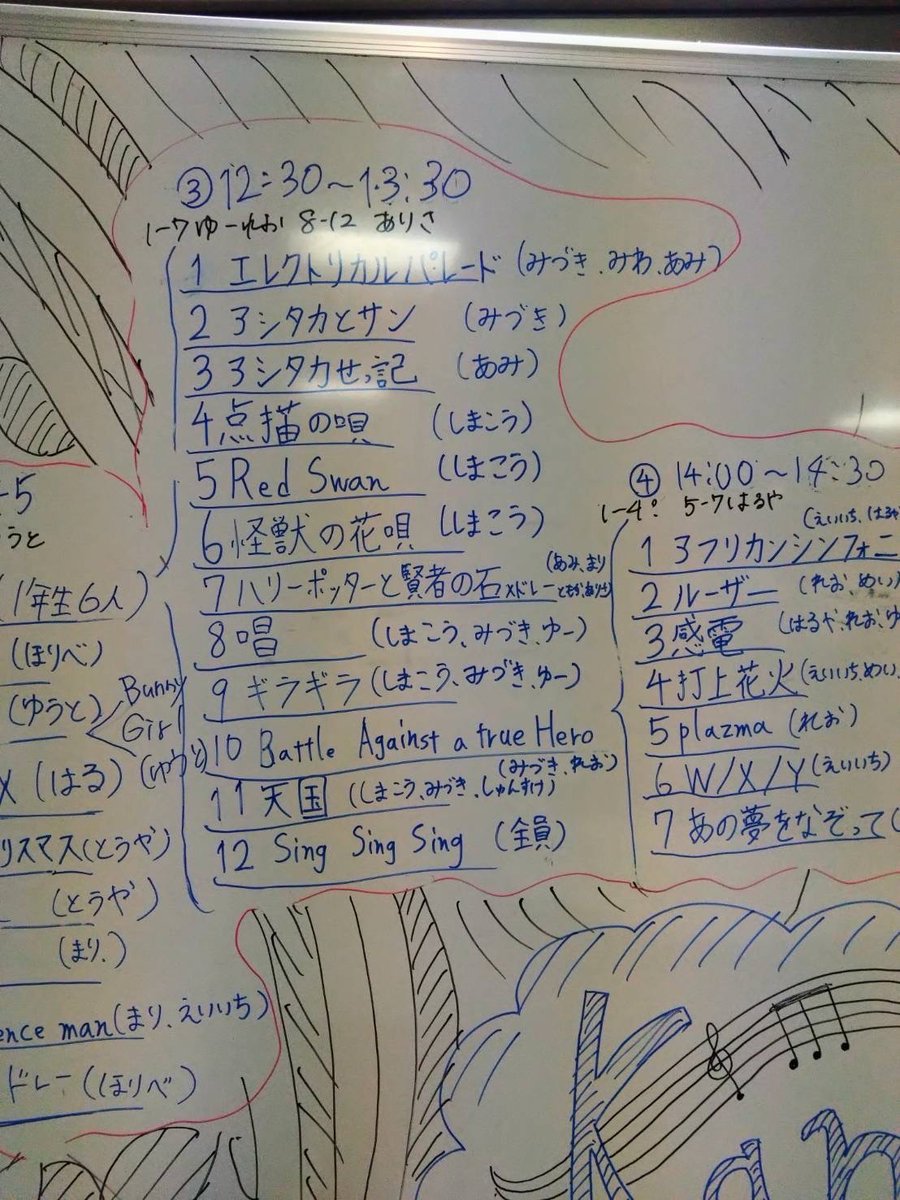 ③12:30～13:30
1-7 ゆー れお 8-12 ありさ
1 エレクトリカルパレード (みづき、みわ、あみ)
2 アシタカとサン (みづき)
3 アシタカせっ記 (あみ)
4 点描の唄 (しまこう)
5 Red Swan (しまこう)
6 怪獣の花唄 (しまこう)
7 ハリーポッターと賢者の石メドレー (あみ、まり
8 唱 (しまこう、みづき、ゆー)
9 ギラギラ (しまこう、みづき、ゆー)
10 Battle Against a true Hero
(みづき、れお)
11 天国 (しまこう、みづき、しゅんすけ)
12 Sing Sing Sing (全員)
④ 14:00～14:30
1-4: 5-7はるや
(えいいち、はるや
1 アフリカンシンフォニ
2 ルーザー (れお、めい)
3 感電 (はるや、れお、ゆ
4 打上花火 (えいいち、めい、
5 plazma (れお)
6 W/X/Y (えいいち)
7 あの夢をなぞって(
-5
うと
(1年生6人)
(ほりべ)
(ゆうと) Bunny Girl
X (はる) (ゆうと)
リスマス(とうや)
(とうや)
(まり.)
ence man(まり、えいいち)
ドレー (ほりべ)
Kan